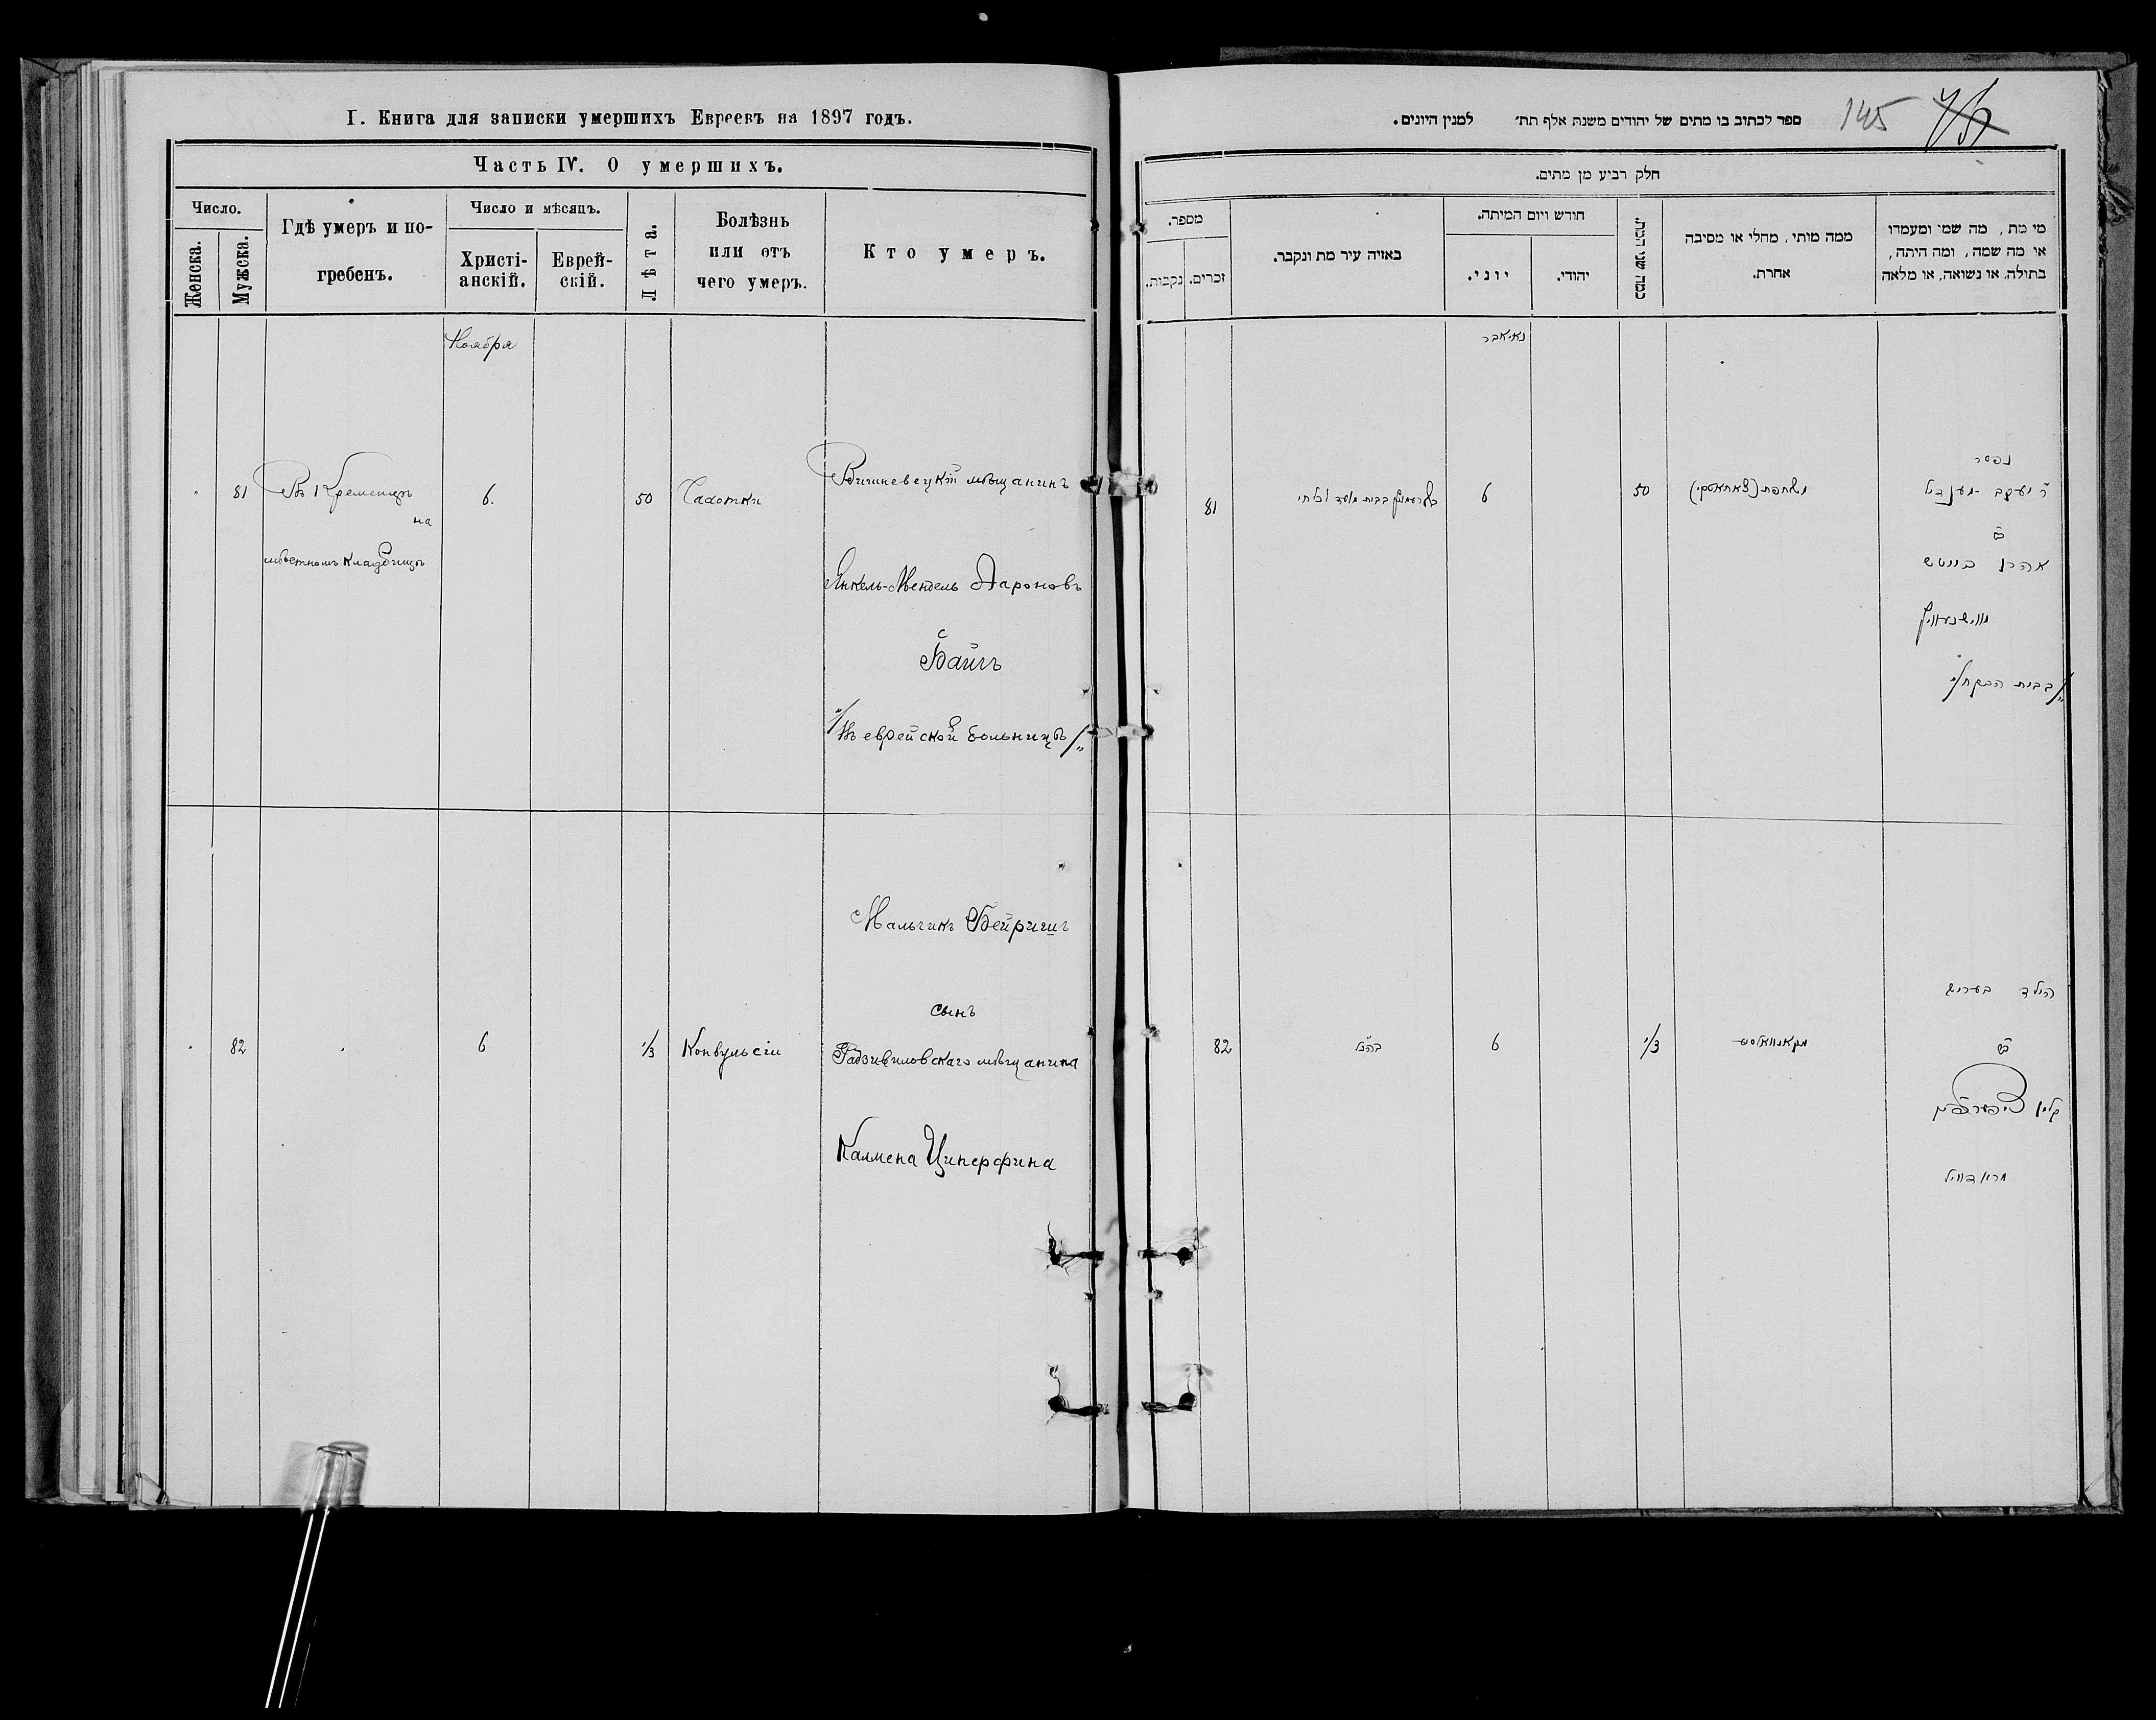 I. Книга для записки умершихъ Евреевъ на 1897 годъ.
Часть IV. О умершихъ.
Число.
Женска.
Мужска.
Гдѣ умеръ и по-
гребенъ.
Число и мѣсяцъ.
Христі-
анскій.
Еврей-
скій.
Лѣта.
Болѣзнь
или отъ
чего умеръ.
Кто умеръ.
Ноября
81
Въ Кременцѣ
на
мѣстномъ кладбищѣ
6.
50
Чахотки
Вишневецкій мѣщанинъ
Янкель-Мендель Ароновъ
Байтъ
/Въ еврейской больницѣ/
82
6
1/3
Конвульсіи
Мальчикъ Бейришъ
сынъ
Радзивиловскаго мѣщанина
Калмена Циперфина
ספר לכתוב בו מתים של יהודים משנת אלף תת׳ למנין היונים.
145
חלק רביע מן מתים.
מספר.
נקבות.
זכרים.
באיזה עיר מת ונקבר.
חודש ויום המיתה.
יוני.
יהודי.
כמה שני המת.
ממה מותי, מחלי או מסיבה
אחרת.
מי מת, מה שמו ומעמדו
או מה שמה, ומה היתה,
בתולה, או נשואה, או מלאה
נאיאבר
81
6
50
נפטר
ר׳ יעקב מענדיל
ב״ר
אהרן
82
בה״נל
6
1/3
הילד בעריש
ב״ר